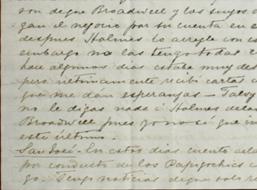 son digue Broadwell y los suyos
gan el negocio por su cuenta en e
despues Holmes lo arregle con es
embargo no las tengo todas c
hace algunos dias estaba muy des
pero ultimamente recibi cartas
que me dan esperanzas — Talvez
no le digas nada á Holmes de la
Broadwell pues yo no sé que in
este último.
San José. En estos dias cuento
por conducto de los Papigochics
go. Tengo noticias de que